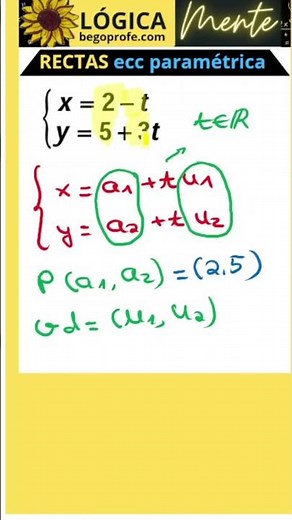 LÓGICA Mente
begoprofe.com
RECTAS ecc paramétrica
x = 2 – t
y = 5 + 3t
t∈ℝ
x = a1 + t u1
y = a2 + t u2
P(a1, a2) = (2,5)
vd = (u1, u2)